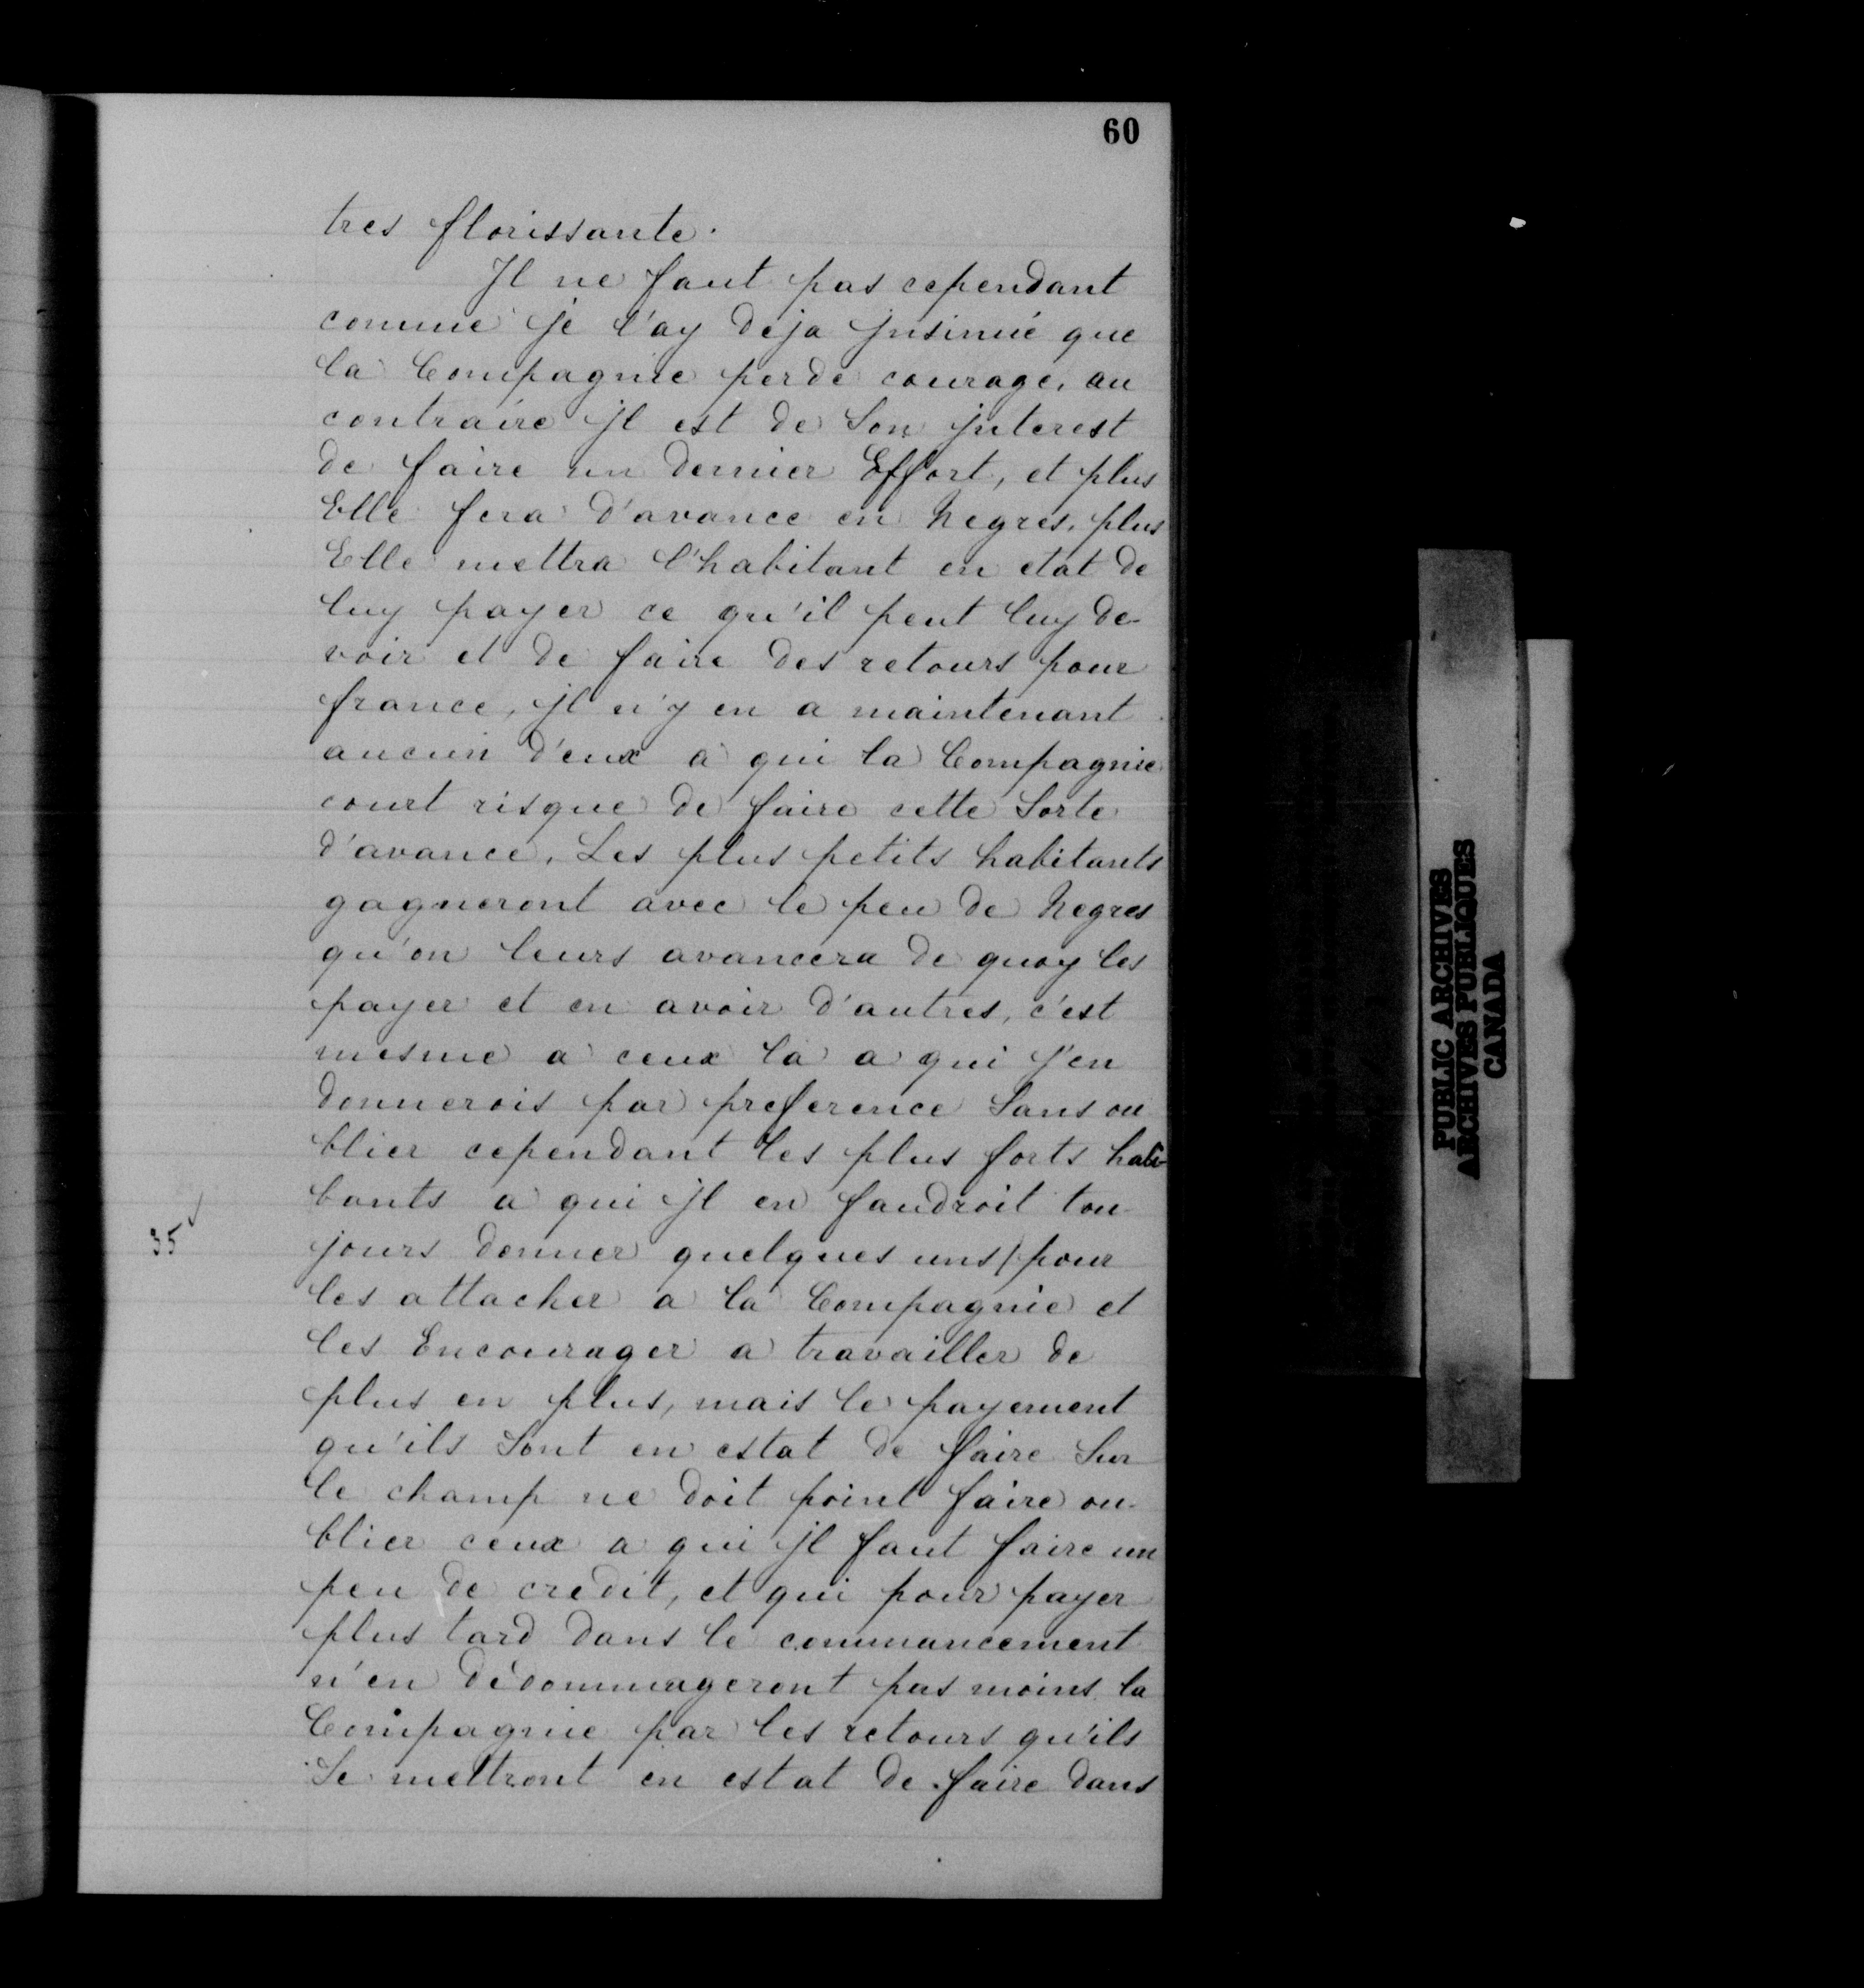 60
tres florissante.
Jl ne faut pas cependant
comme je l'ay deja jnsinué que
la Compagnie perde courage, au
contraire jl est de Son jnterest
de faire un dernier Effort, et plus
Elle fera d'avance en Negres, plus
Elle mettra l'habitant en etat de
luy payer ce qu'il peut luy de-
voir et de faire des retours pour
france, jl n'y en a maintenant
aucun d'eux a qui la Compagnie
court risque de faire cette Sorte
d'avance, Les plus petits habitants
gagneront avec le peu de Negres
qu'on leurs avancera de quoy les
payer et en avoir d'autres, c'est
mesme a ceux la a qui j'en
donnerois par preference Sans ou
blier cependant les plus forts habi-
tants a qui jl en faudroit tou-
35
jours donner quelques uns / pour
les attacher a la Compagnie et
les Encourager a travailler de
plus en plus, mais le payement
qu'ils Sont en estat de faire Sur
le champ ne doit point faire ou-
blier ceux a qui jl faut faire un
peu de credit, et qui pour payer
plus tard dans le commancement
n'en dédommageront pas moins la
Compagnie par les retours qu'ils
Se mettront en estat de faire dans
PUBLIC ARCHIVES
ARCHIVES PUBLIQUES
CANADA